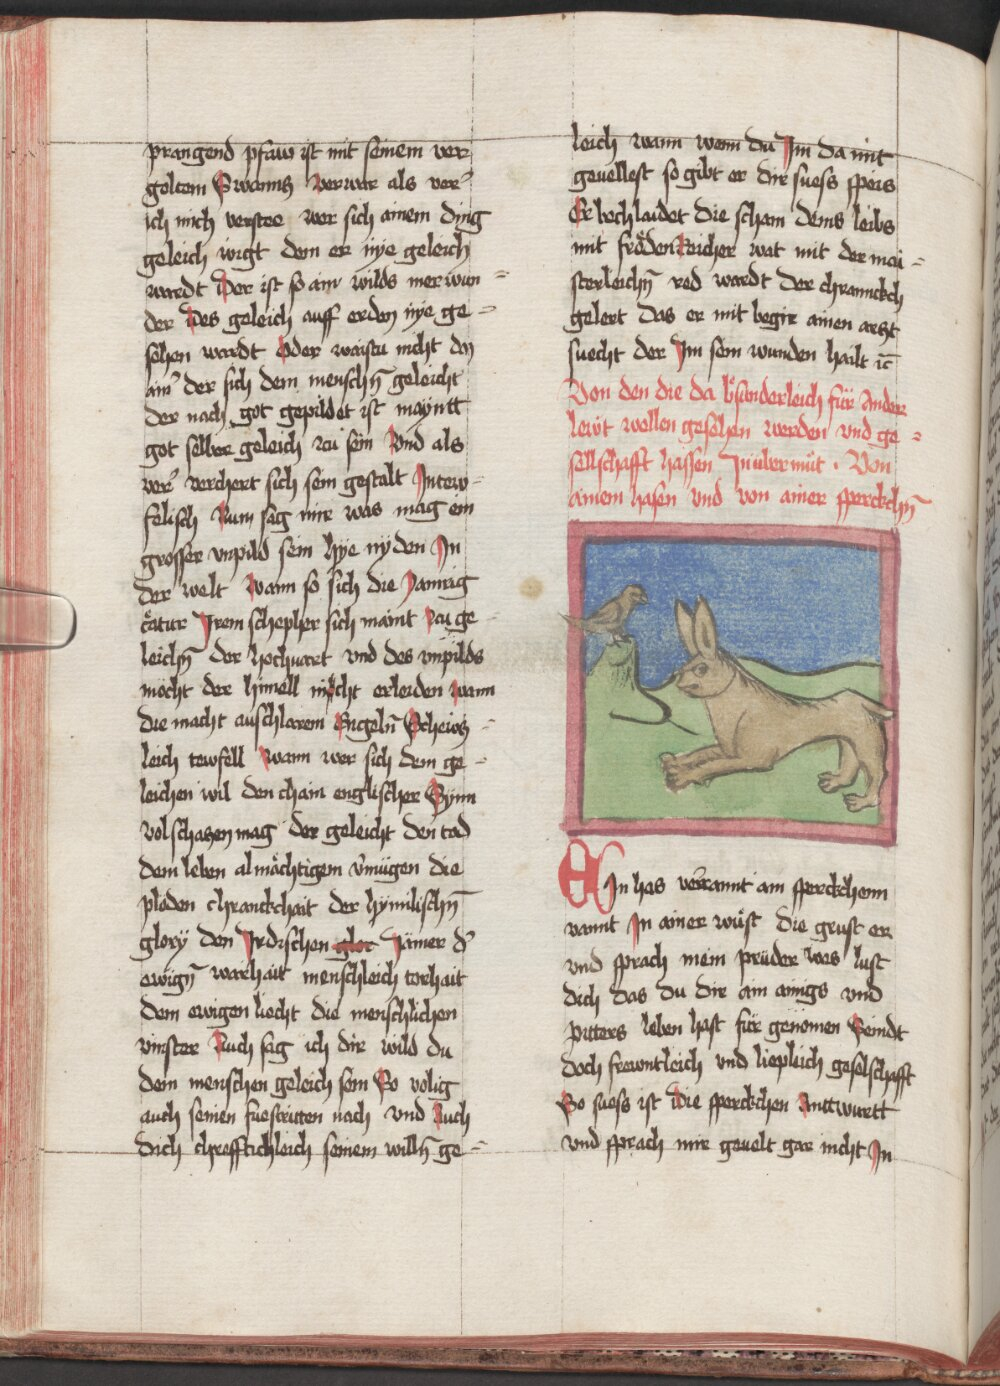 prangend pfaw ist mit seinem ver
goltem Swanntz Verwar als ver
ich mich verstee wer sich ainem ding
geleich wigt dem er nye geleich
wardt Der ist so ain wilds merwun=
der Des geleich auff erden nye ge=
sehen wardt Oder waistu nicht das
ainer der sich dem menschn̄ geleicht
der nach got gepildet ist maynt
got selber geleich zu sein Vnd als
verr verchert sich sein gestalt In tew=
felisch Nun sag mir was mag ein
grosser vnpild sein hye nyden In
der welt Wann so sich die Jamrig
creatur Irem schepher sich maint zu ge
leichn̄ der hochuart vnd des vnpilds
mocht der himell nicht erleiden Wann
die macht aus chlarem Engeln̄ Scheitz=
leich tewfell Wann wer sich dem ge=
leichen wil den chain englischer Synn
volschatzen mag der geleicht den tod
dem leben almächtigem vermügen die
plöden chranckchait der hymlischn̄
glory den Irdischen Jamer der
ewign̄ warhait menschleich torhait
dem ewigen liecht die menschlichen
vinster Auch sag ich dir wild du
dem menschen geleich sein So volig
auch seinen fuestritten nach vnd Auch
dich chrefftichleich seinem willn̄ ge=
leich wann wenn du Im da mit
geuellest so gibt er dir suess speis
Er bechlaidet die scham deins leibs
mit fröden Reicher wat mit der mai=
sterleichn̄ red wardt der chrannckch
gelert das er mit begir ainen arzt
suecht der Im sein wunden hailt etc̄
Von den die da bsunderleich für Ander
lewt wellen gesehen werden vnd ge=
sellschafft hassen In vbermut . Von
ainem hasen vnd von ainer sperckchn̄
EIn has verrannt ain sperckchenn
vannt In ainer wüst die grust er
vnd sprach mein prüder was lust
dich das du dir ain ainigs vnd
pitters leben hast für genomen Seindt
doch frewntleich vnd liepleich geselschafft
So suess ist Die sperckchen Anttwurtt
vnd sprach mir geuelt gar nicht In